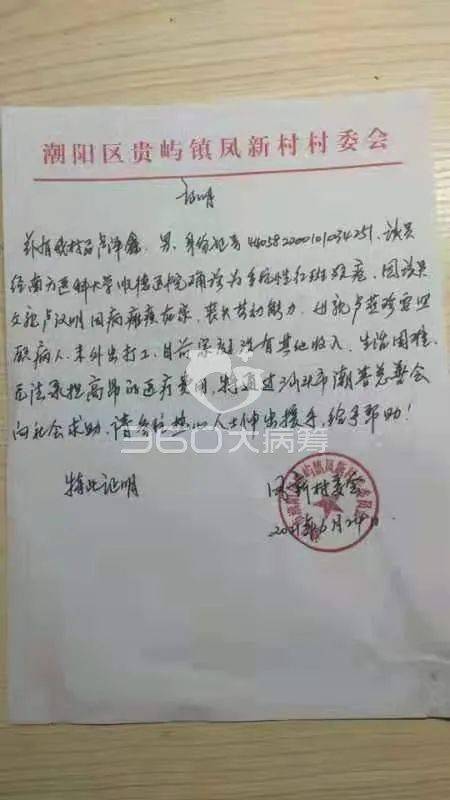 潮阳区贵屿镇凤新村村委会
证明
兹有我村民卢泽鑫，男，身份证号4405822000101034251，该员
经南方医科大学顺德医院确诊为系统性红斑狼疮，因该员
父亲卢汉明因病瘫痪在家，丧失劳动能力，母亲卢燕珍需照
顾病人，未外出打工，目前家庭没有其他收入，生活困难，
无法承担高昂的医疗费用，特通过汕头市潮普慈善会
向社会求助，请各位热心人士伸出援手，给予帮助！
特此证明
凤新村委会
2021年6月24日
360大病筹